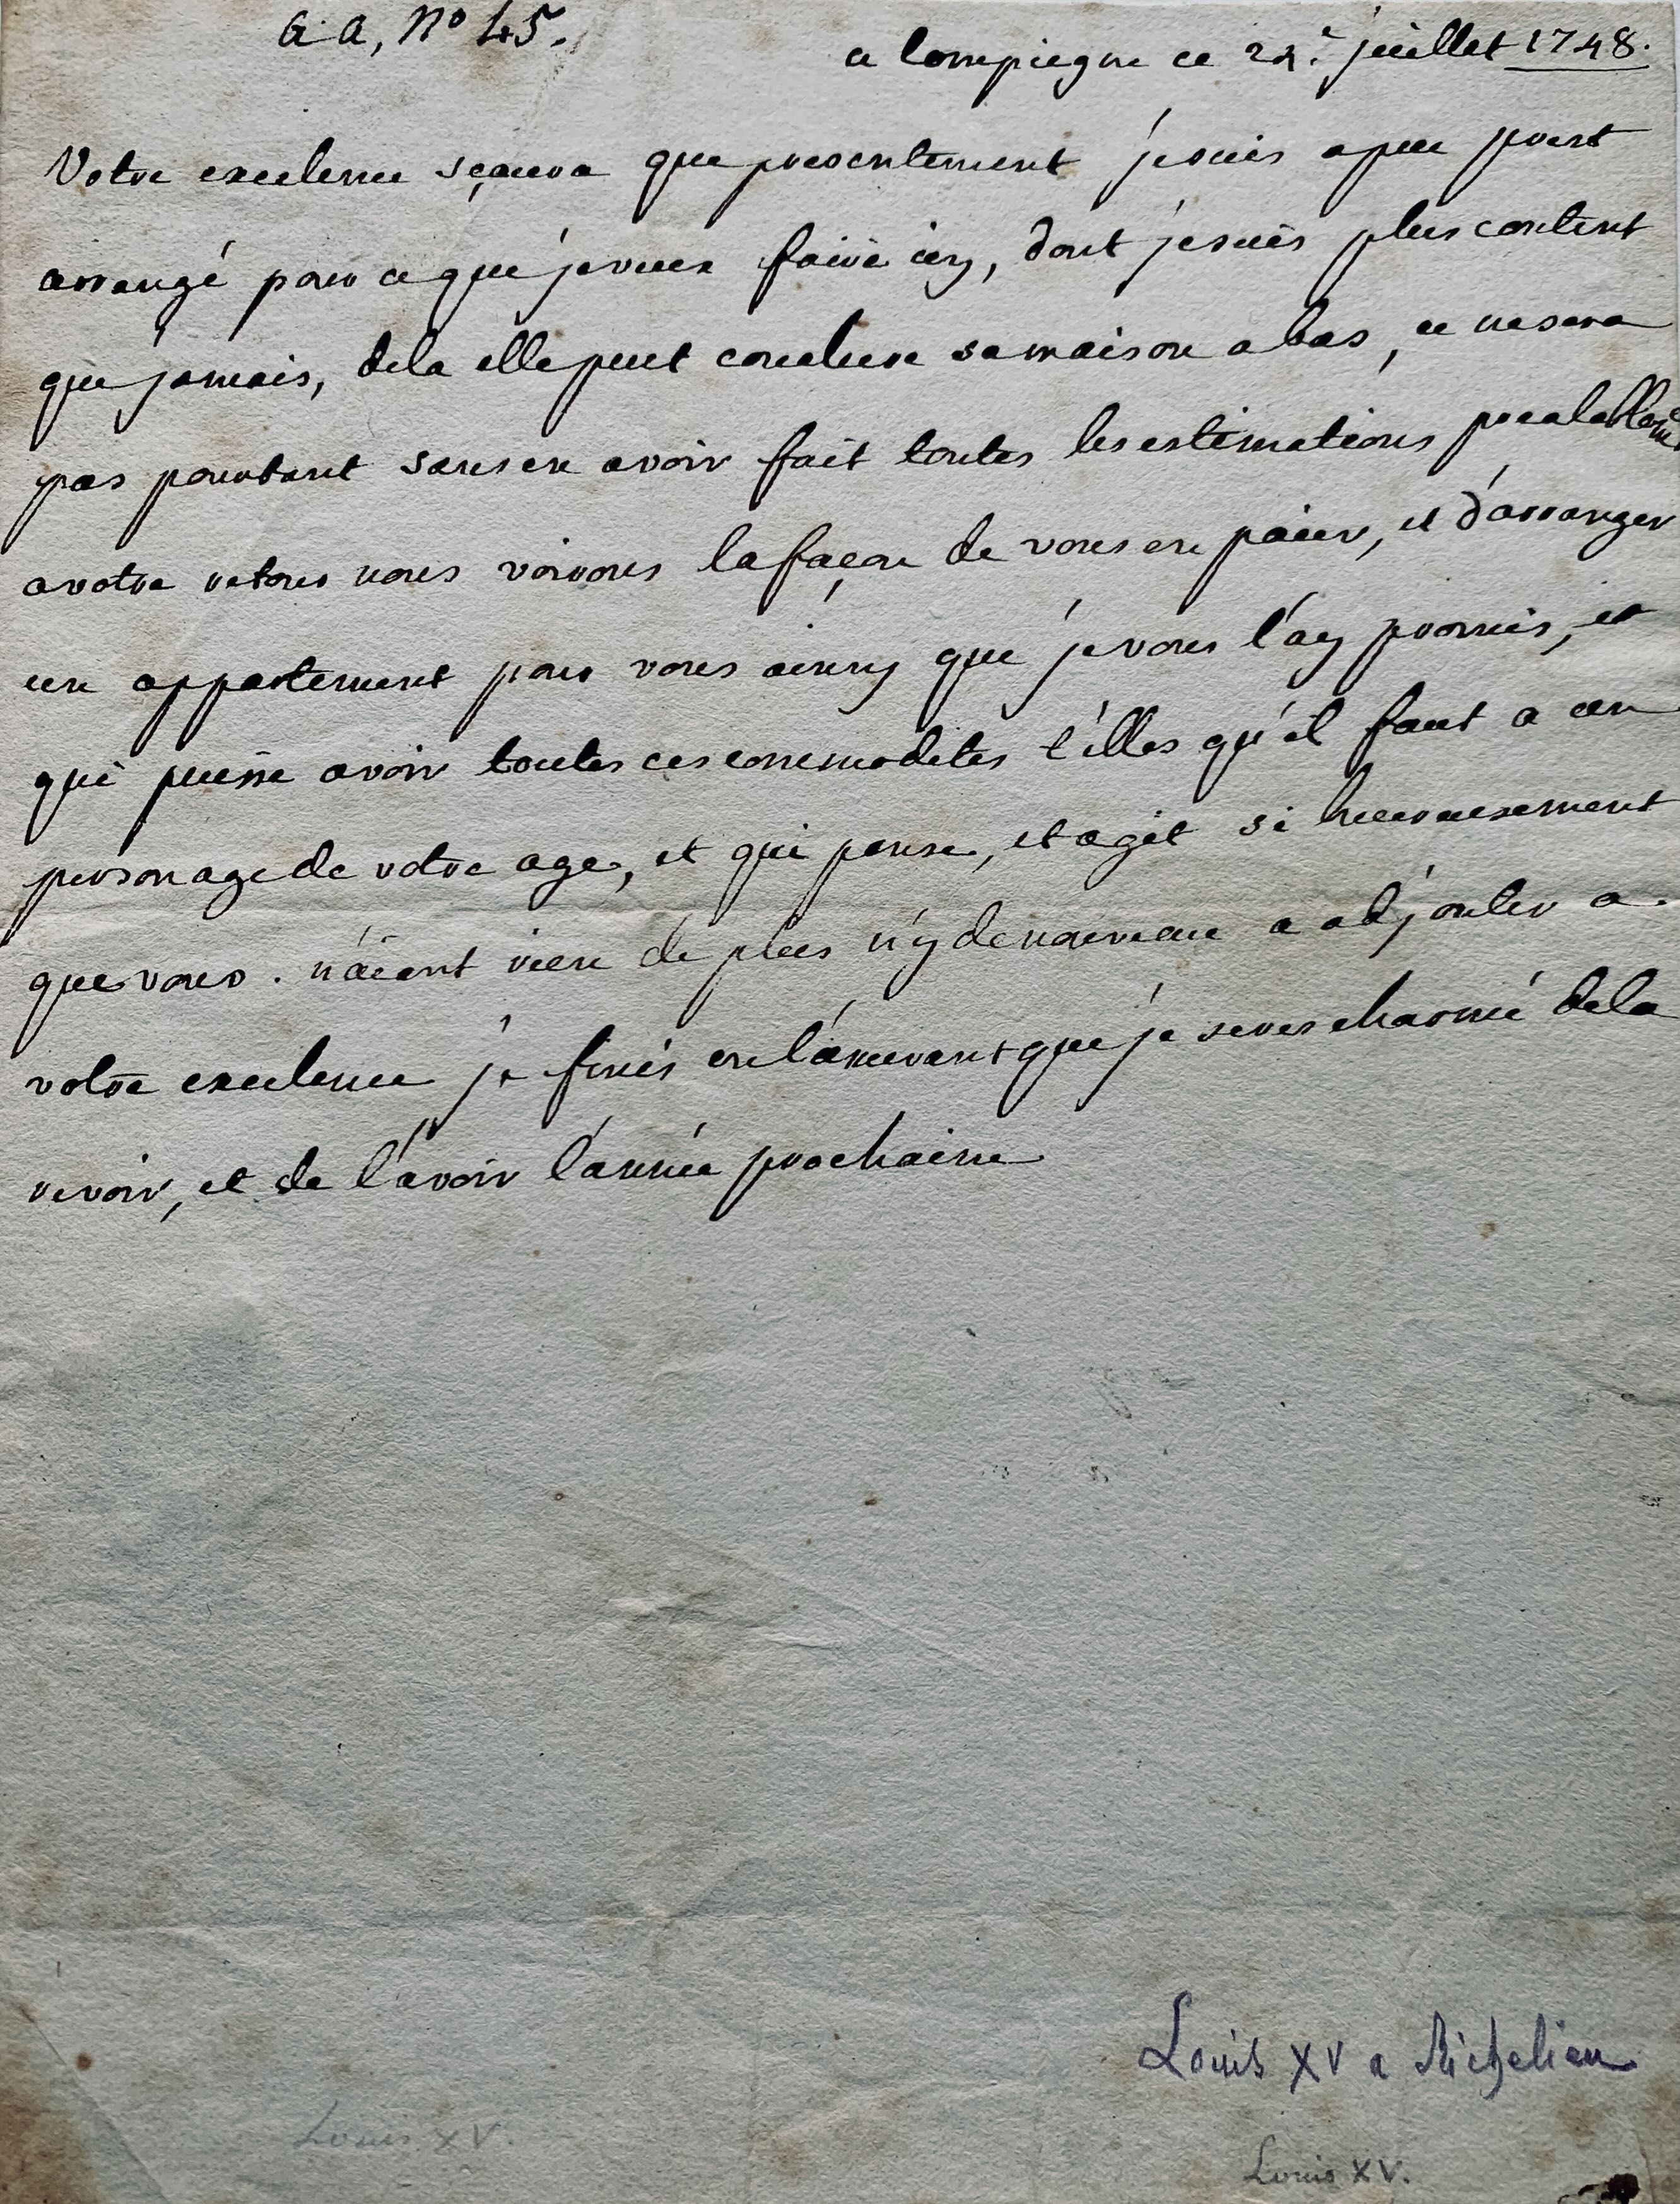 G. a, N° 45.
a Compiegne ce 24.e juillet 1748.
Votre excelence sçaura que presentement je suis a peu prest
arrangé pour ce que je veux faire icy, dont je suis plus content
que jamais, dela elle peut conclure sa maison a bas, ce ne sera
pas pourtant sans en avoir fait toutes les estimations prealablemt
a votre retour nous voirons la façon de vous en païer, et d'arranger
un appartement pour vous ainsy que je vous l'ay promis, et
qui puisse avoir toutes ces commodités t'elles qu'il faut a un
personage de votre age, et qui pense, et agit si heureusement
que vous. n'aiant rien de plus n'y de nouveau a adjouter a
votre excelence je finis en l'assurant que je seres charmé de la
revoir, et de l'avoir l'année prochaine
Louis XV a Richelieu
Louis XV.
Louis XV.